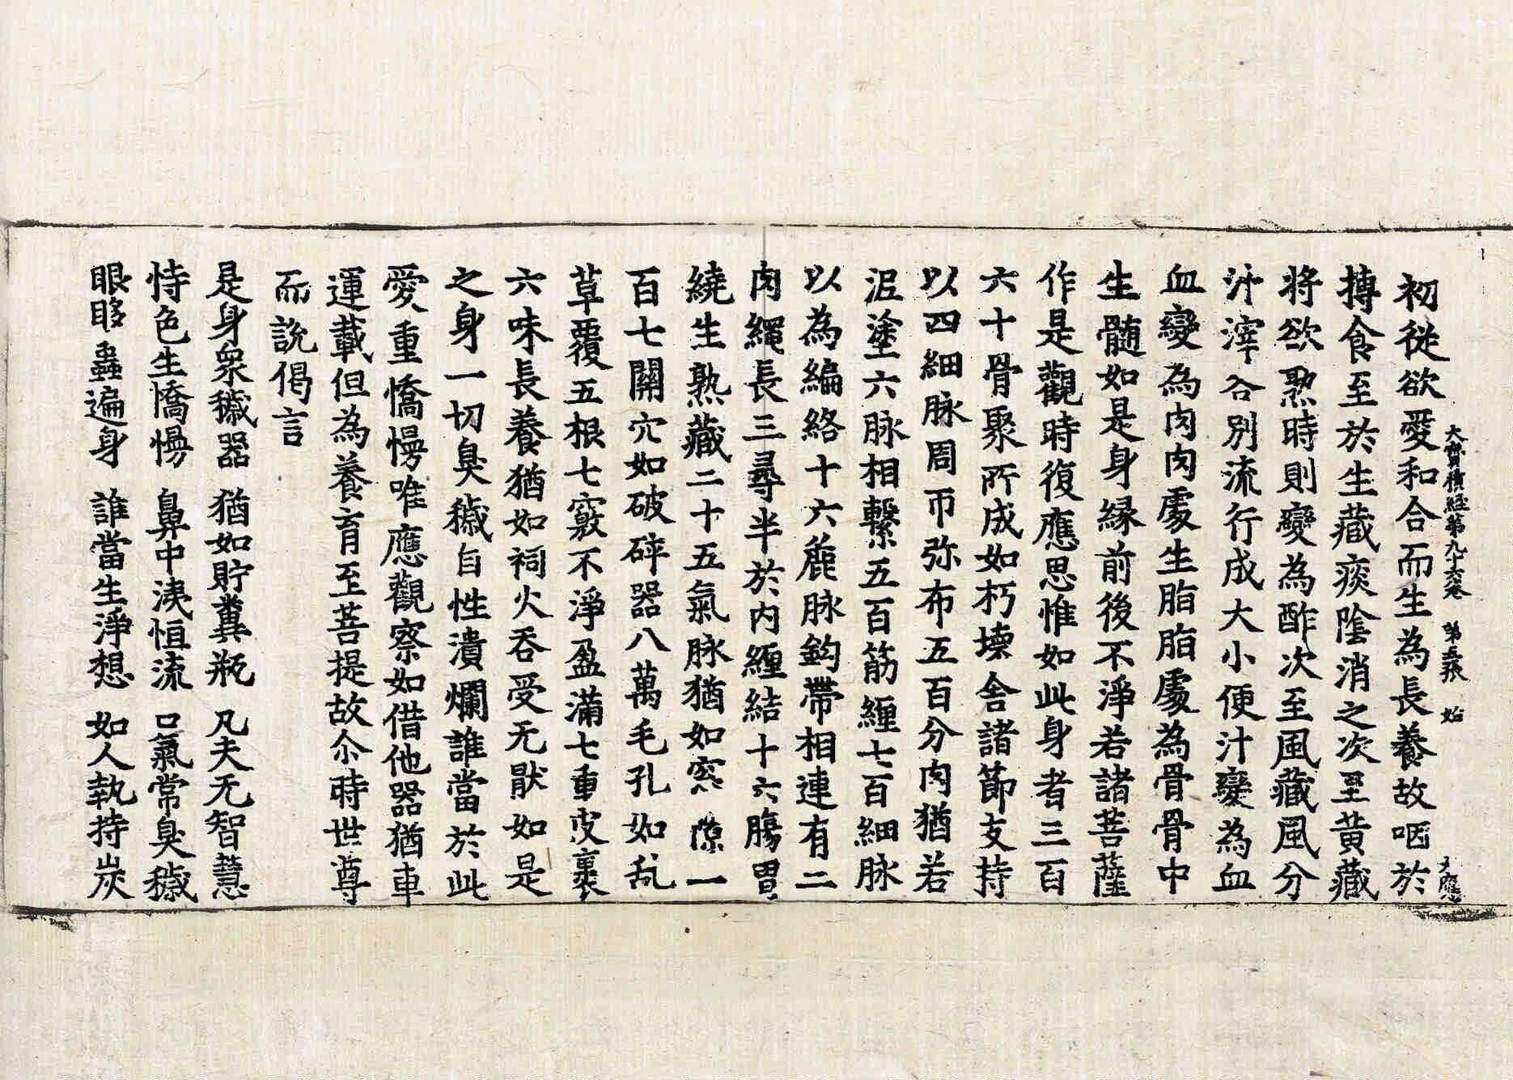 大寶積經第九十六卷　第五張　始
大應
初從欲愛和合而生為長養故咽於
摶食至於生藏痰陰消之次至黃藏
将欲熟時則變為酢次至風藏風分
汁滓各別流行成大小便汁變為血
血變為肉肉處生脂脂處為骨骨中
生髓如是身緣前後不淨若諸菩薩
作是觀時復應思惟如此身者三百
六十骨聚所成如朽壞舍諸節支持
以四細脉周帀弥布五百分肉猶若
泥塗六脉相繫五百筋纏七百細脉
以為編絡十六麁脉鈎帶相連有二
肉繩長三尋半於內纏結十六膓胃
繞生熟藏二十五氣脉猶如窓隙一
百七關穴如破碎器八萬毛孔如乱
草覆五根七竅不淨盈滿七重皮裹
六味長養猶如祠火吞受无猒如是
之身一切臭穢自性潰爛誰當於此
愛重憍慢唯應觀察如借他器猶車
運載但為養育至菩提故尒時世尊
而說偈言
是身衆穢器　猶如貯糞瓶　凡夫无智慧
恃色生憍慢　鼻中洟恒流　口氣常臭穢
眼眵蟲遍身　誰當生淨想　如人執持炭